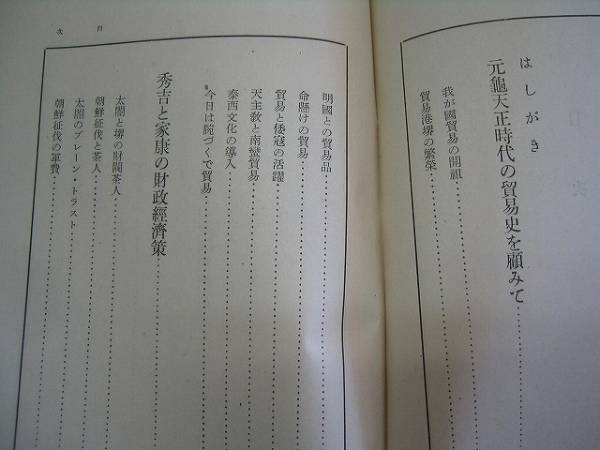 はしがき
元龜天正時代の貿易史を顧みて
我が國貿易の開祖
貿易港堺の繁榮
目次
明國との貿易品
命懸けの貿易
貿易と倭寇の活躍
天主敎と南蠻貿易
泰西文化の導入
今日は腕づくで貿易
秀吉と家康の財政經濟策
太閤と堺の財閥茶人
朝鮮征伐と茶人
太閤のブレーン・トラスト
朝鮮征伐の軍費